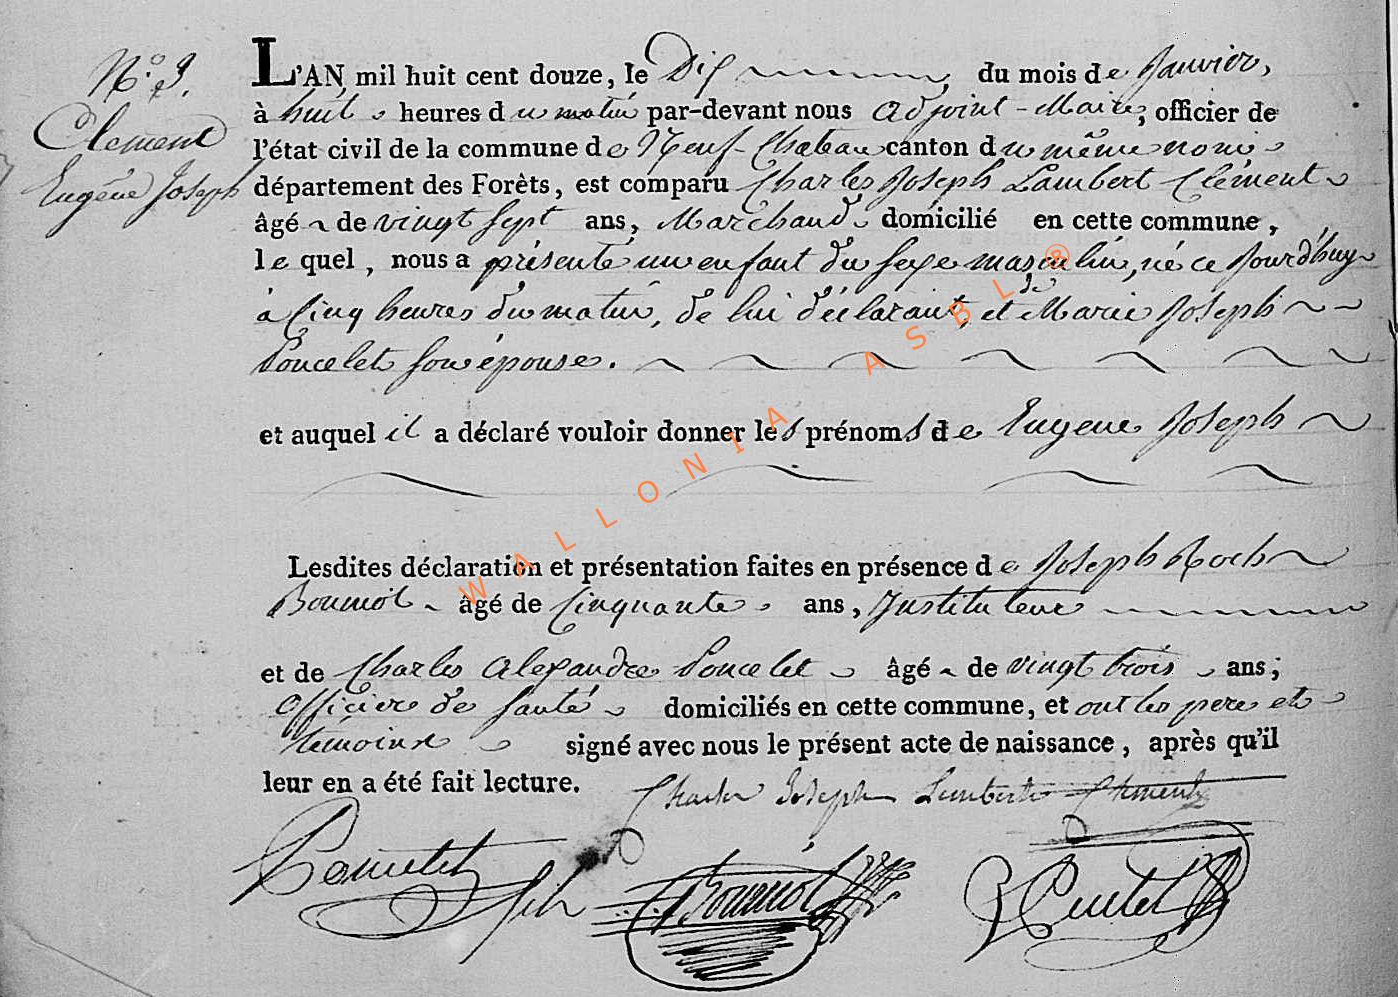 N.° 3.
Clement
Eugêne Joseph
L'AN mil huit cent douze, le Dix du mois de Janvier,
à huit heures du matin par-devant nous adjoint-Maire, officier de
l'état civil de la commune de Neuf-Chateau canton du même nom
département des Forêts, est comparu Charles Joseph Lambert Clément
âgé de vingt sept ans, Marchand domicilié en cette commune,
le quel, nous a présenté un enfant du sexe masculin, né ce Jourd'huy
à Cinq heures du matin, de lui déclarant, et de Marie Joseph
Poncelet son épouse.
et auquel il a déclaré vouloir donner les prénoms de Eugene Joseph
Lesdites déclaration et présentation faites en présence de Joseph Roch
Bournot âgé de Cinquante ans, Instituteur
et de Charles Alexandre Poncelet âgé de vingt trois ans;
officier de santé domiciliés en cette commune, et ont les pere et
témoins signé avec nous le présent acte de naissance, après qu'il
leur en a été fait lecture.
Charles Joseph Lambert Clement
Bournot
WALLONIA ASBL ®